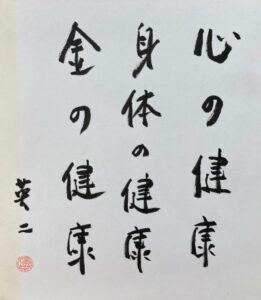 心の健康
身体の健康
金の健康
英二